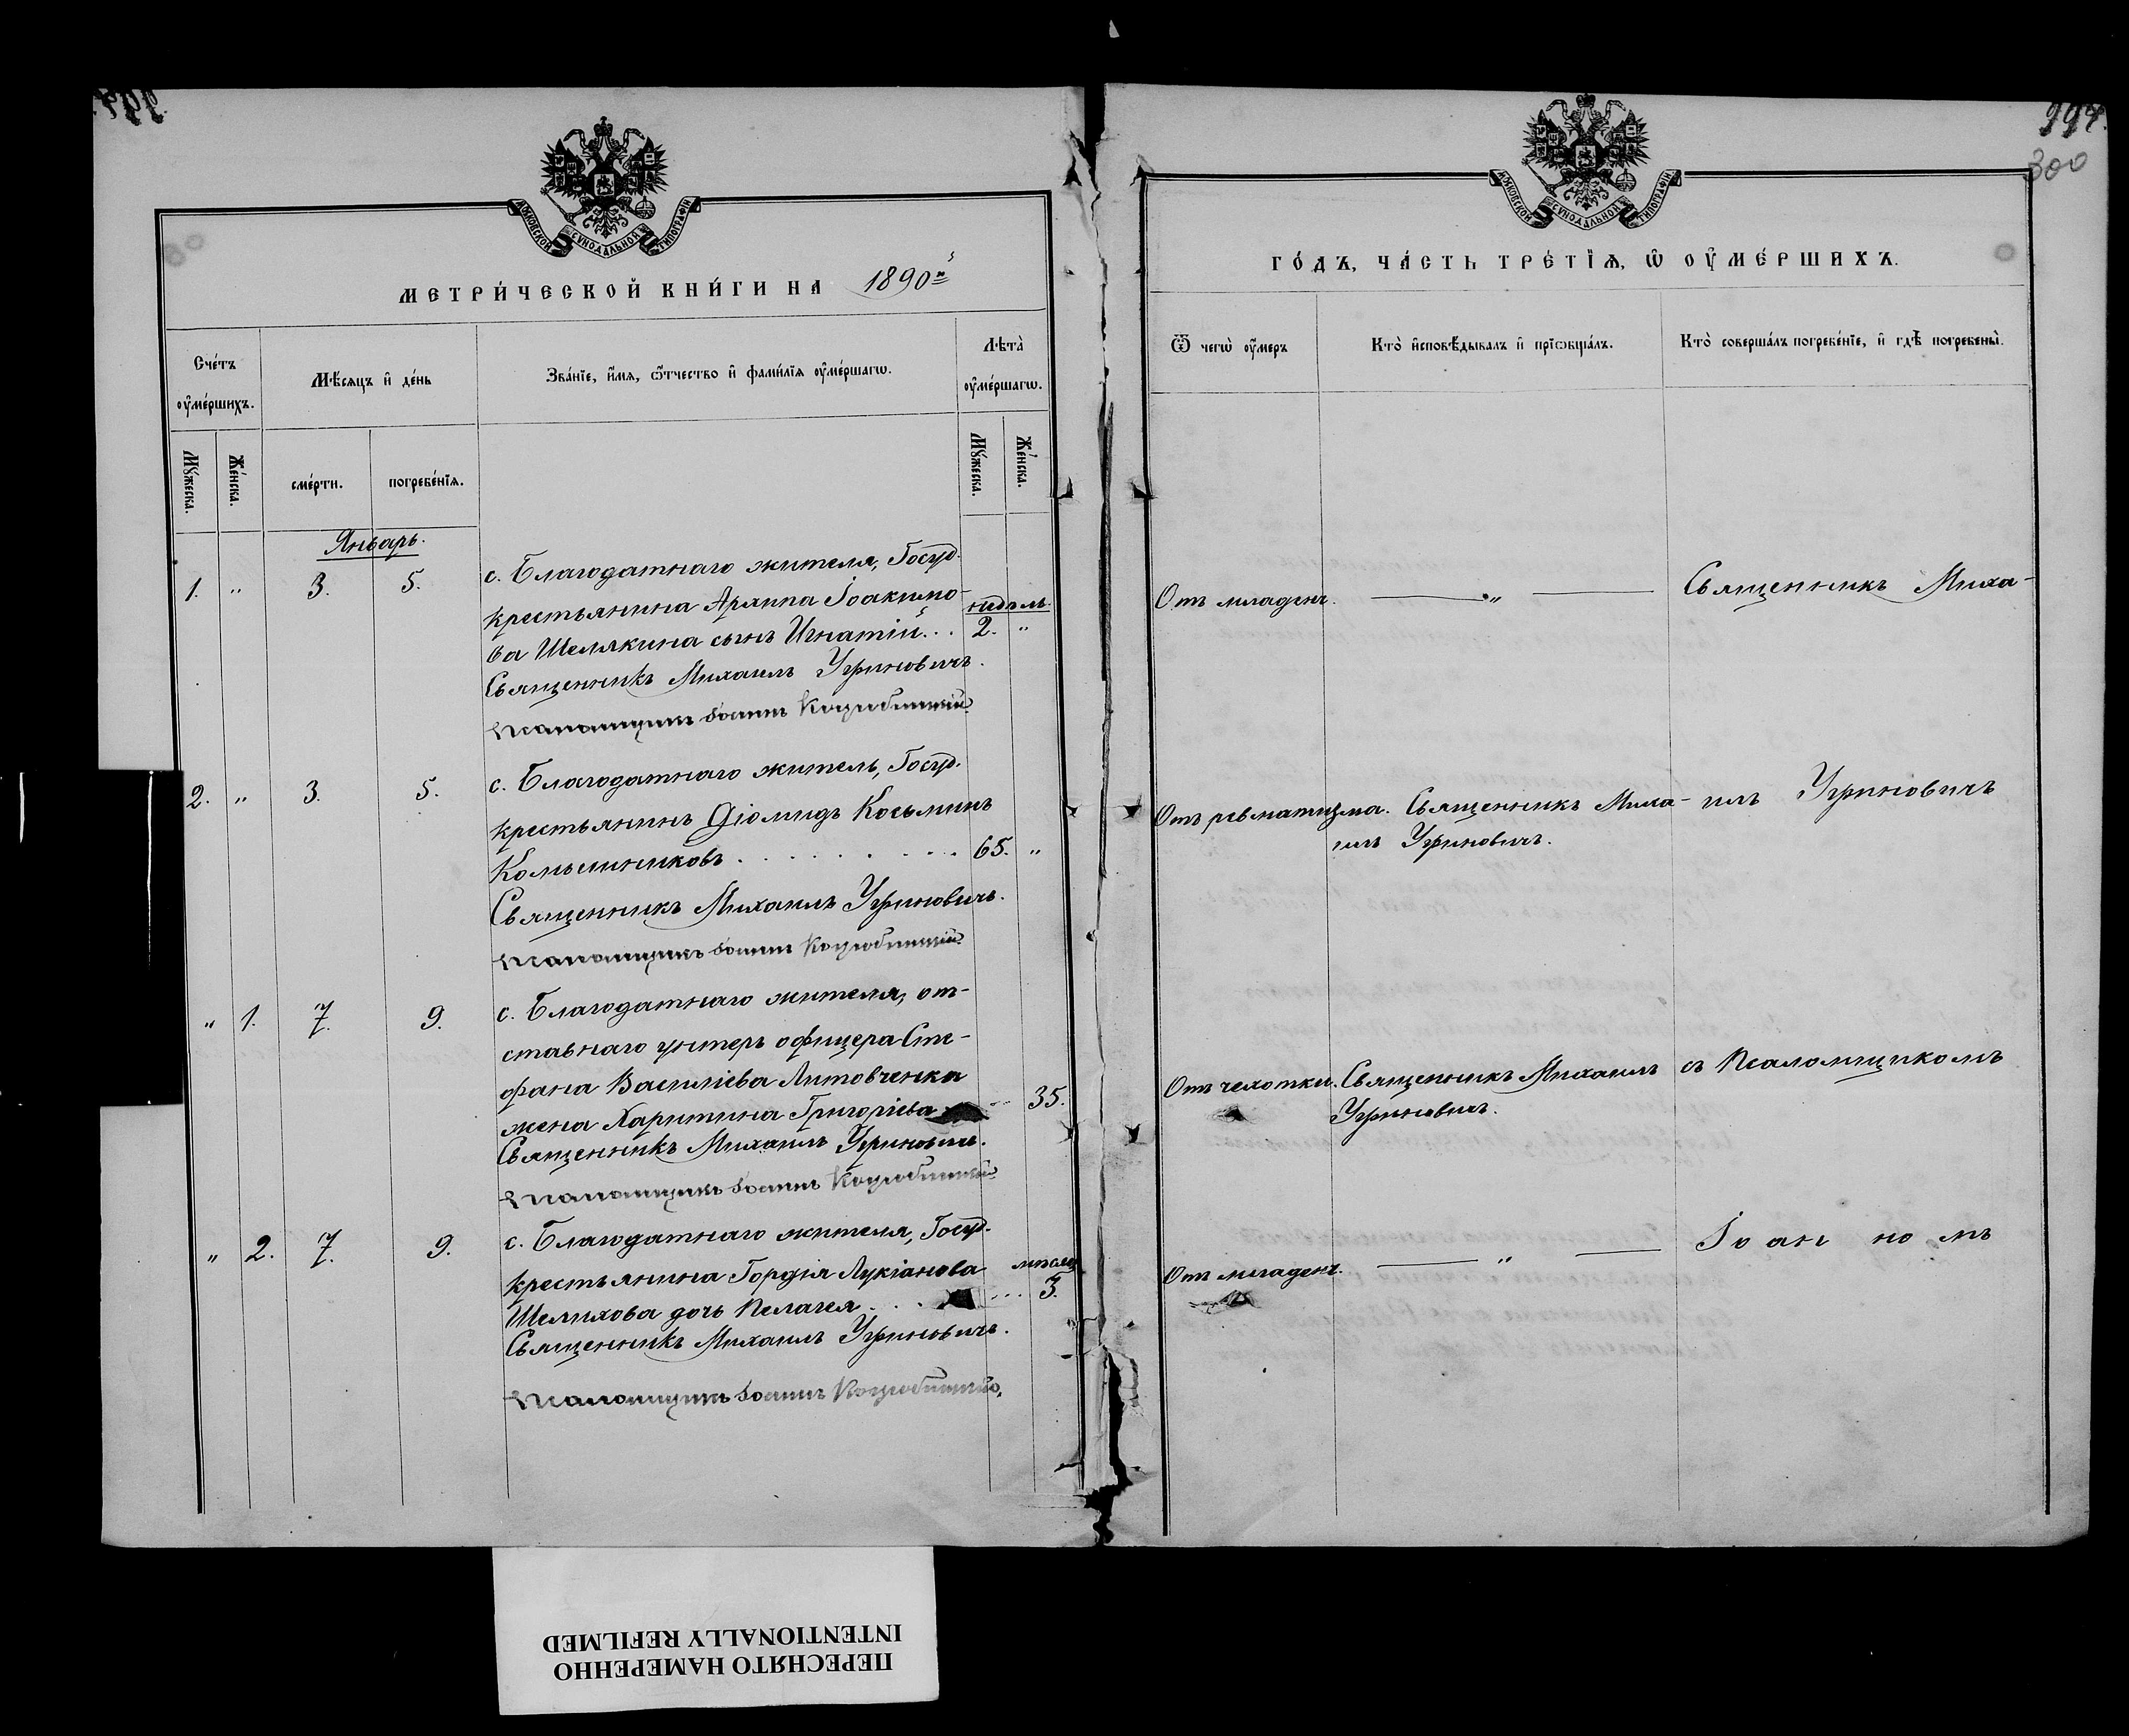 994.
300
МОСКОВСКОЙ СѴНОДАЛЬНОЙ ТИПОГРАФІИ
МЕТРИ́ЧЕСКОЙ КНИ́ГИ НА 1890й
Сче́тъ оу҆ме́ршихъ.
Мѣ́сяцъ и҆ де́нь
Зва́нїе, и҆́мѧ, ѻ҆́тчество и҆ фами́лїѧ оу҆ме́ршагѡ.
Лѣта̀ оу҆ме́ршагѡ.
Мꙋ́жеска.
Же́нска.
сме́рти.
погребе́нїѧ.
Мꙋ́жеска.
Же́нска.
Январь.
1. " 3. 5.
с. Благодатнаго жителя, Госуд.
крестьянина Архипа Іоакимо-
ва Шелякина сынъ Игнатій... недѣль. 2. "
Священникъ Михаилъ Угриновичъ.
Псаломщикъ Іоаннъ Коцюбинскій
2. " 3. 5.
с. Благодатнаго житель, Госуд.
крестьянинъ Діомидъ Косьминъ
Комышниковъ . . . . . . . 65. "
Священникъ Михаилъ Угриновичъ.
Псаломщикъ Іоаннъ Коцюбинскій
" 1. 7. 9.
с. Благодатнаго жителя, от-
ставнаго унтеръ офицера Сте-
фана Василіева Литовченка
жена Харитина Григоріева 35.
Священникъ Михаилъ Угриновичъ.
Псаломщикъ Іоаннъ Коцюбинскій
" 2. 7. 9.
с. Благодатнаго жителя, Госуд.
крестьянина Гордія Лукіанова мѣсяц.
Шелихова дочь Пелагея . . . 3.
Священникъ Михаилъ Угриновичъ.
Псаломщикъ Іоаннъ Коцюбинскій
МОСКОВСКОЙ СѴНОДАЛЬНОЙ ТИПОГРАФІИ
ГО́ДЪ, ЧА́СТЬ ТРЕ́ТЇѦ, Ѡ҆ ОУ҆МЕ́РШИХЪ.
Ѿ чегѡ̀ оу҆́меръ
Кто̀ и҆сповѣ́дывалъ и҆ прїѡбща́лъ.
Кто̀ соверша́лъ погребе́нїе, и҆ гдѣ̀ погребены̀.
Отъ младенч. — " — Священникъ Миха-
Отъ ревматизма. Священникъ Миха- илъ Угриновичъ
илъ Угриновичъ.
Отъ чахотки. Священникъ Михаилъ съ Псаломщикомъ
Угриновичъ.
Отъ младенч. — " — Іоанномъ
ПЕРЕСНЯТО НАМЕРЕННО
INTENTIONALLY REFILMED